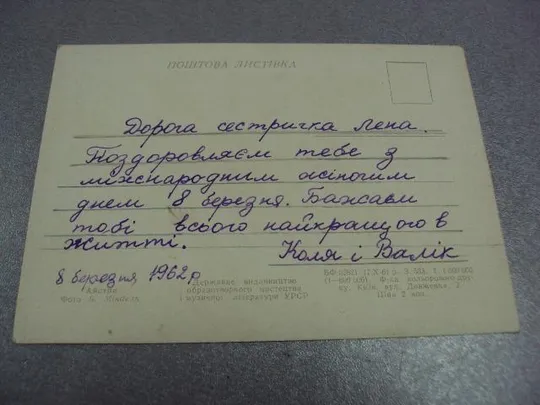 ПОШТОВА ЛИСТІВКА
Дорога сестричка Лена.
Поздоровляєм тебе з
міжнародним жіночим
днем 8 березня. Бажаєм
тобі всього найкращого в
житті. Коля і Валік
8 березня 1962 р
Державне видавництво
образотворчого мистецтва
і музичної літератури УРСР
Фото
Ціна 2 коп.